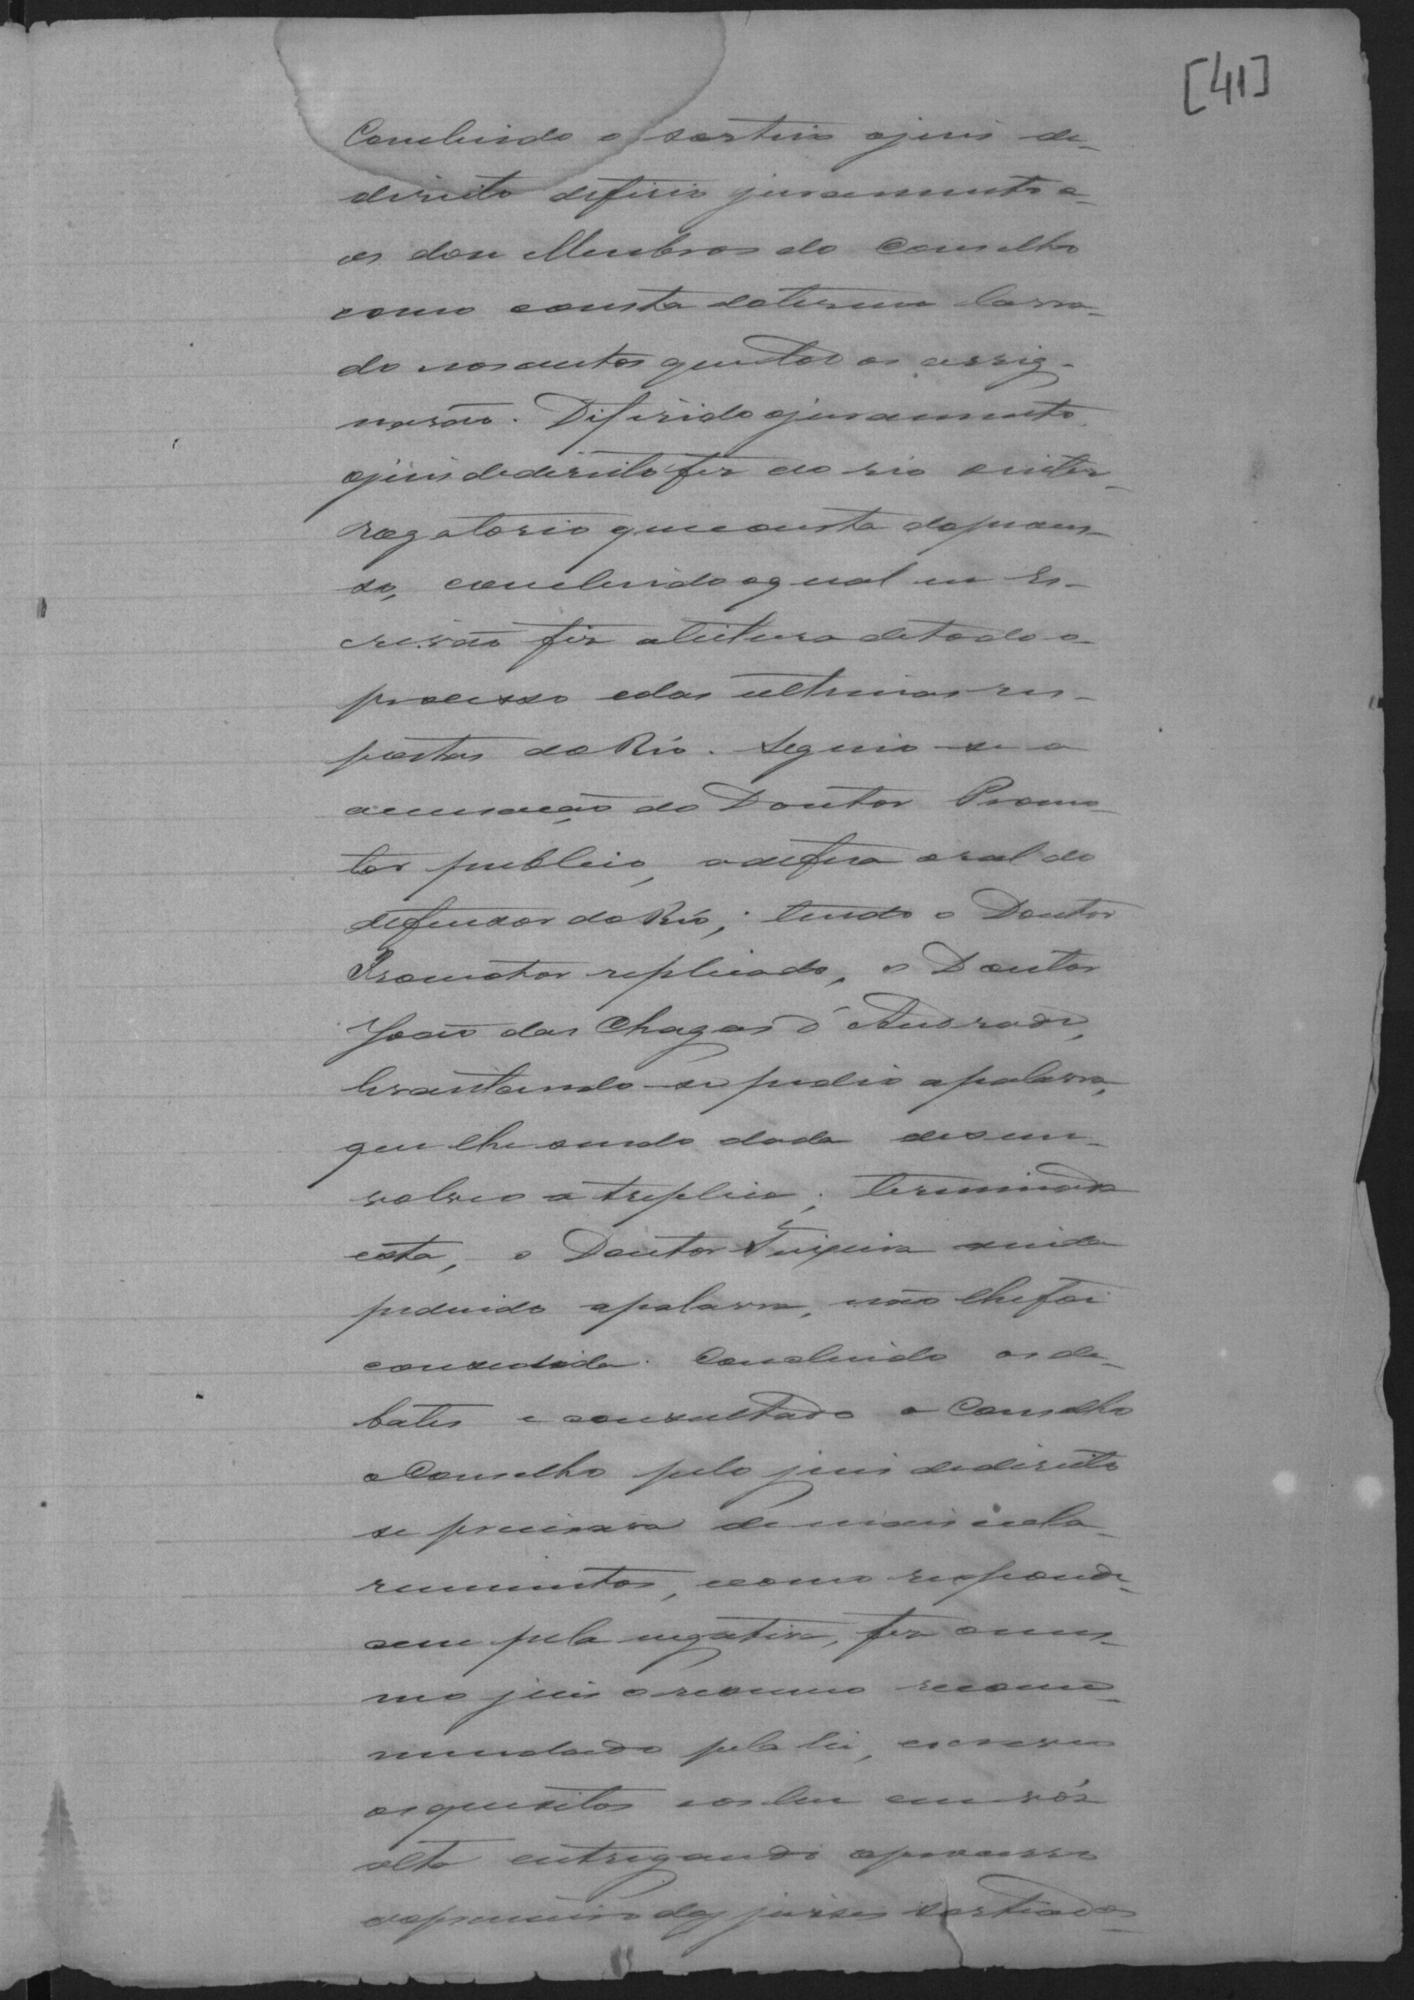 [41]
Concluido o sorteio o juis de
direito deferio juramento a-
os doze Membros do Conselho
como consta do termo lavra-
do nos autos que todos assig-
narão. Diferido o juramento
o juis de direito fez ao réo o inter-
rogatorio que consta do proces-
so, concluido o qual eu Es-
crivão fiz a leitura de todo o
processo e das ultimas res-
postas do Réo. Seguio-se a
accusação do Doutor Promo-
tor publico, a defesa oral do
defensor do Réo; tendo o Doutor
Promotor replicado, o Doutor
João das Chagas d'Andrade,
levantando-se pedio a palavra,
que lhe sendo dada desen-
volveo a treplica; terminada
esta, o Doutor Teixeira ainda
pedindo a palavra, não lhe foi
consedida. Concluido os de-
bates e consultado o Conselho
o Conselho pelo juis de direito
se precisava de mais escla-
recimentos, como responde-
cem pela negativa, fez o mes-
mo juis o resumo recom-
mendado pela lei, escreveu
os quesitos os leu em vós
alta entregando o processo
ao primeiro dos juises sorteados